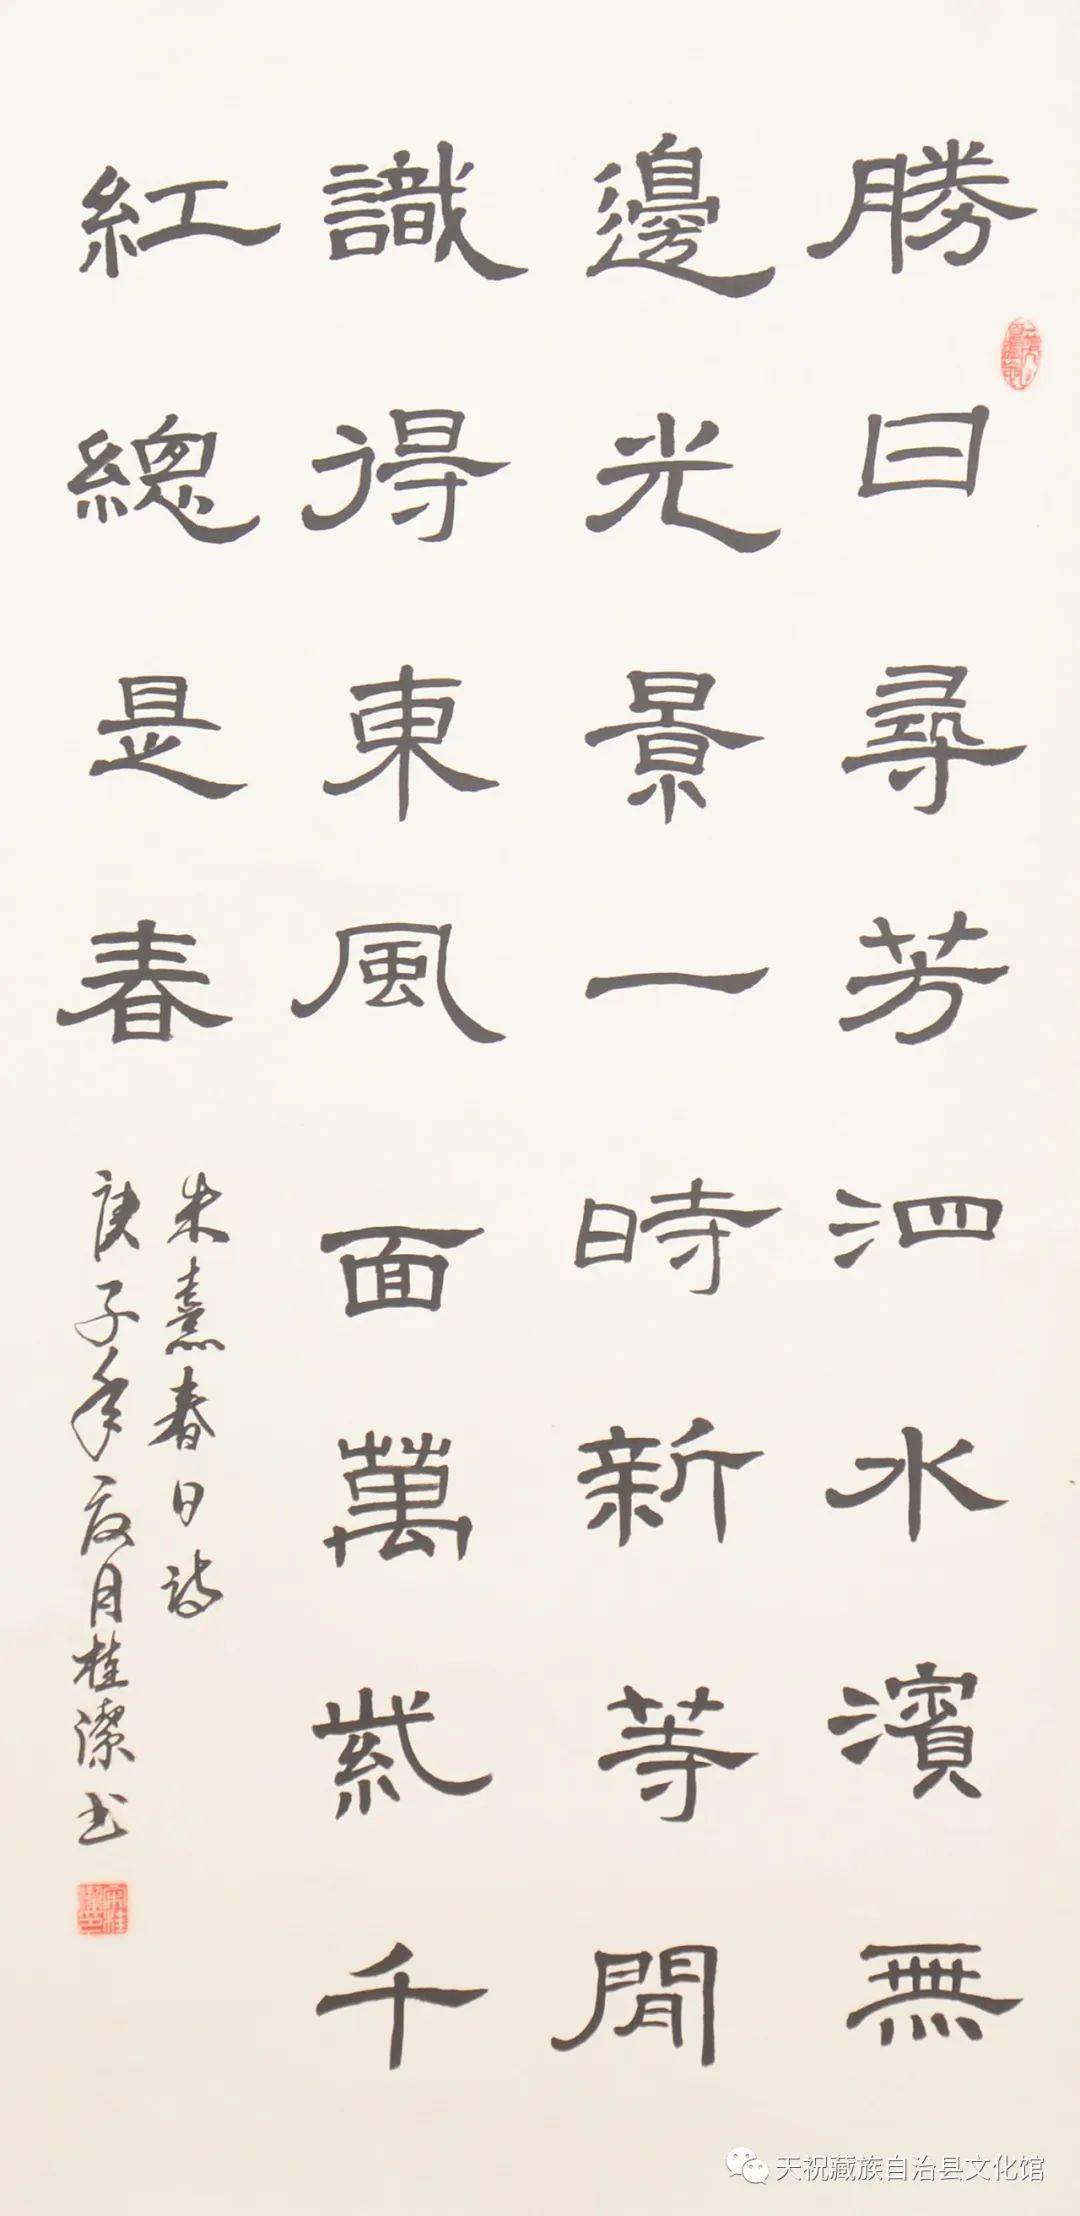 勝日尋芳泗水濱無
邊光景一時新等閒
識得東風面萬紫千
紅總是春
朱熹春日詩
庚子年夏月桂潔书
天祝藏族自治县文化馆